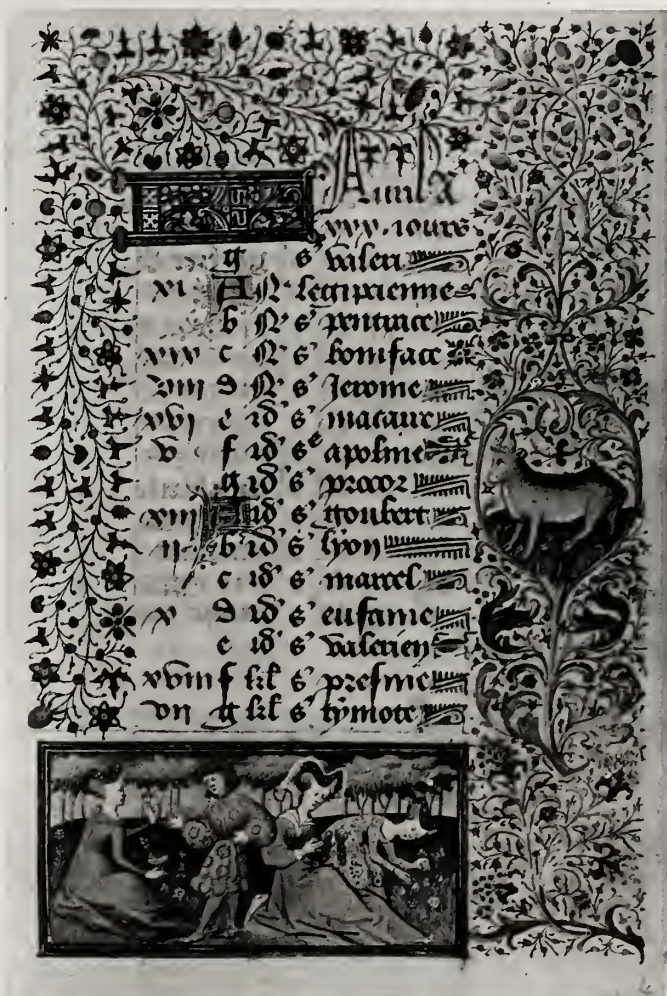 Auril a
xxx. iours
g s' valeri
xi A N' legipcienne
b N' s' pancrace
xix c N' s' boniface
viii d N' s' Jerome
xvi e id' s' macaire
v f id' s' apoline
g id' s' procor
xiii A id' s' goubert
ii b id' s' lyon
c id' s' marcel
x d id' s' eufame
e id' s' valerien
xviii f kl' s' presme
vii g kl' s' tymote